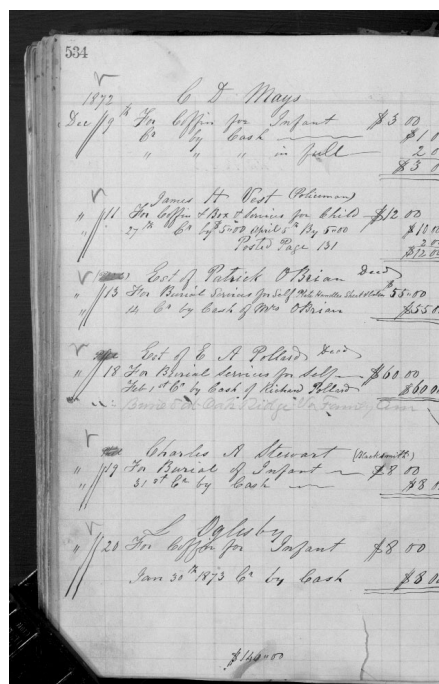 534
1872 C D Mays
Dec 9th For Coffin for Infant $3 00
Cr by Cash $1
" " " in full 2 0
$3 0
James H Vest (Policeman)
" 11 For Coffin & Box & Services for Child $12 00
" 27th Cr by $5=00 April 5th By 5=00 $10 00
Posted Page 131 2 00
$12 00
Est of Patrick OBrian Decd
" 13 For Burial Services for Self Plate Handles $55=00
" 14 Cr by Cash of Mrs OBrian $55.0
Est of E A Pollard Decd
" 18 For Burial Services for Self $60 00
Feb 1st Cr by Cash of Richard Pollard $60 0
" Buried at Oak Ridge Va Family
Charles A Stewart (Blacksmith)
" 19 For Burial of Infant $8 00
" 31st Cr by Cash $8 0
L Oglesby
" 20 For Coffin for Infant $8 00
Jan 30th 1873 Cr by Cash $8 0
$146=00